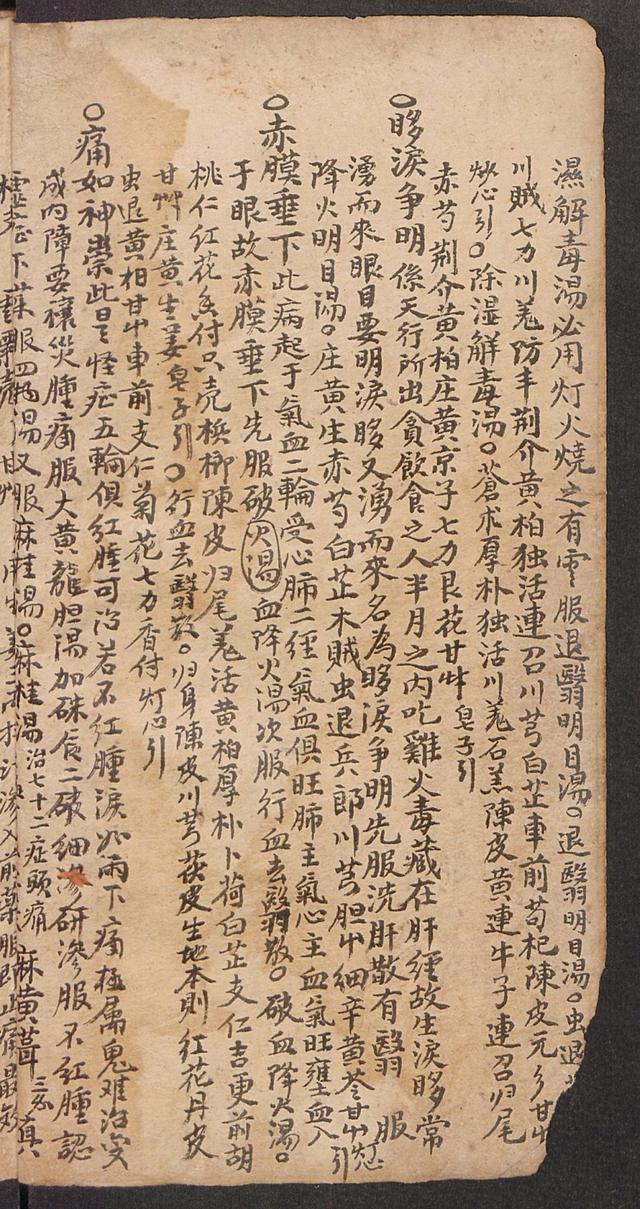 濕解毒湯必用灯火燒之有雲服退翳明目湯。退翳明目湯。虫退
川賊七力川羌防丰荆介黄柏独活連召川芎白芷車前苟杞陳皮元参甘艸
灯心引。除湿解毒湯。蒼朮厚朴独活川羌石羔陳皮黄連牛子連召归尾
赤芍荆介黄柏庄黄京子七力艮花甘艸皂子引
○眵淚争明係天行所出貪飲食之人半月之内吃雞火毒藏在肝經故生淚眵常
湧而來眼目要明淚眵又湧而來名為眵淚争明先服洗肝散有翳服
降火明目湯。庄黄生赤芍白芷木賊虫退兵郎川芎胆艸細辛黄芩甘艸灯心引
○赤膜垂下此病起于氣血二輪受心肺二經氣血俱旺肺主氣心主血氣旺壅血入
于眼故赤膜垂下先服破火湯血降火湯次服行血去翳散。破血降火湯。
桃仁红花香付只壳梹榔陳皮归尾羌活黄柏厚朴卜荷白芷支仁吉更前胡
甘艸庄黄生姜皂子引。行血去翳散。归身陳皮川芎茯皮生地本則红花丹皮
虫退黄柏甘艸車前支仁菊花七力香付灯心引
○痛如神祟此是怪症五輪俱红腫可治若不红腫淚如雨下痛極属鬼难治变
成内障要禳災腫痛服大黄龍胆湯加硃辰二破細滲研滲服不红腫認
症下藥服四物湯又服麻桂湯。麻桂湯治七十二症頭痛麻黄茸三分真